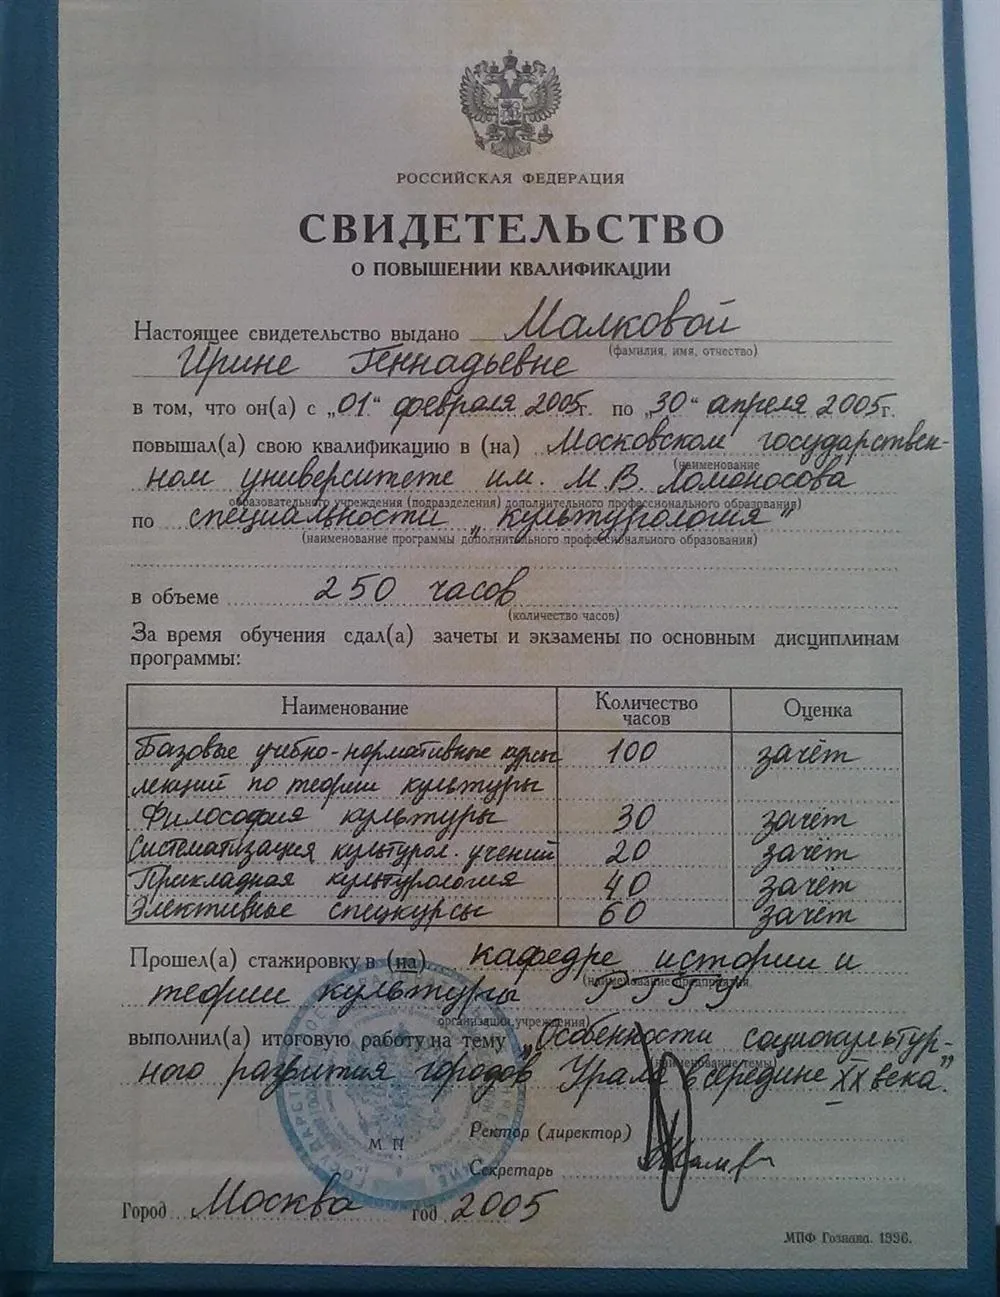 РОССИЙСКАЯ ФЕДЕРАЦИЯ
СВИДЕТЕЛЬСТВО
О ПОВЫШЕНИИ КВАЛИФИКАЦИИ
Настоящее свидетельство выдано Малковой
(фамилия, имя, отчество)
Ирине Геннадьевне
в том, что он(а) с „01“ февраля 2005г. по „30“ апреля 2005г.
повышал(а) свою квалификацию в (на) Московском государствен-
(наименование
ном университете им. М.В. Ломоносова
образовательного учреждения (подразделения) дополнительного профессионального образования)
по специальности „культурология“
(наименование программы дополнительного профессионального образования)
в объеме 250 часов
(количество часов)
За время обучения сдал(а) зачеты и экзамены по основным дисциплинам
программы:
Наименование Количество часов Оценка
Базовые учебно-нормативные курсы 100 зачёт
лекций по теории культуры
Философия культуры 30 зачёт
Систематизация культурол. учений 20 зачёт
Прикладная культурология 40 зачёт
Элективные спецкурсы 60 зачёт
Прошел(а) стажировку в (на) кафедре истории и
(наименование предприятия,
теории культуры РГГУ
организации, учреждения)
выполнил(а) итоговую работу на тему „Особенности социокультур-
(наименование темы)
ного развития городов Урала в середине XX века.“
Ректор (директор)
М П
Секретарь
Город Москва год 2005
МПФ Гознака. 1996.